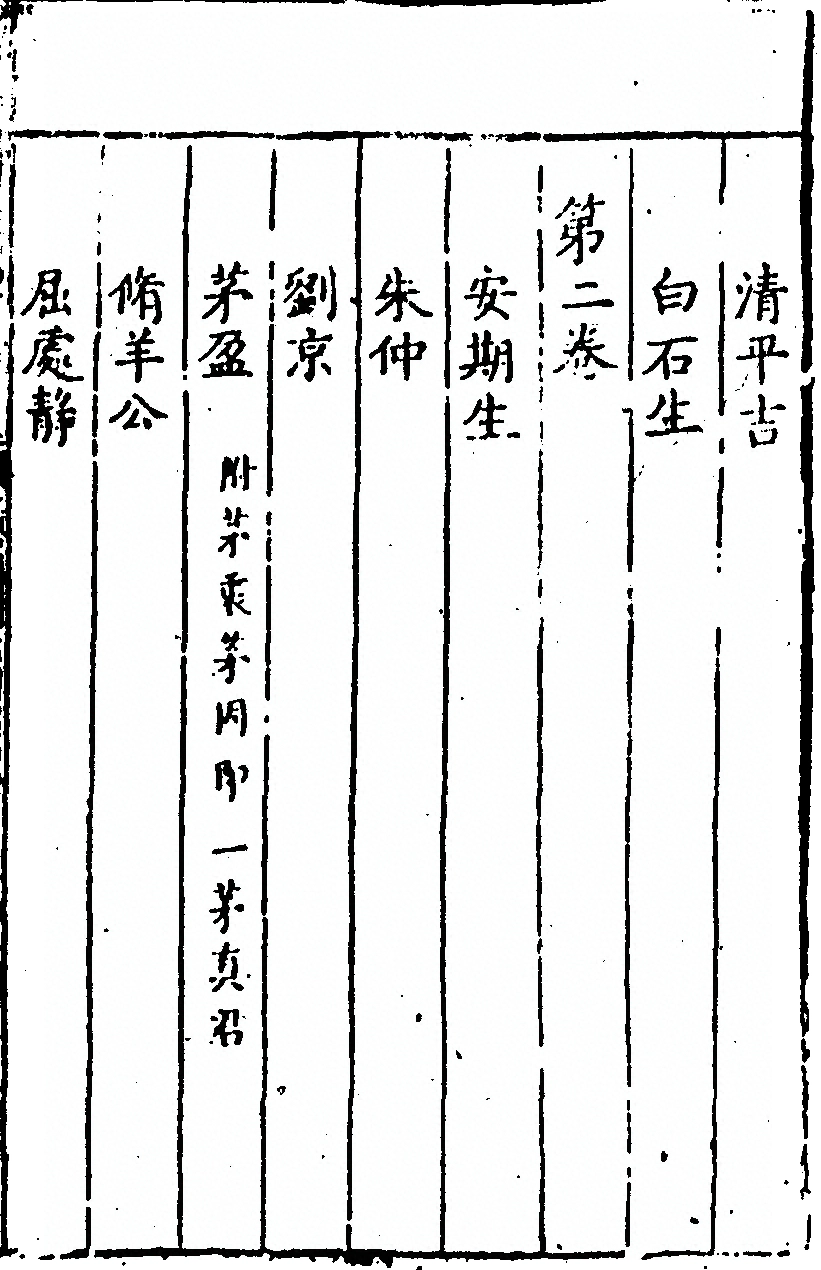 清平吉
白石生
第二卷
安期生
朱仲
劉京
茅盈 附茅衷茅固即一茅真君
脩羊公
屈處静